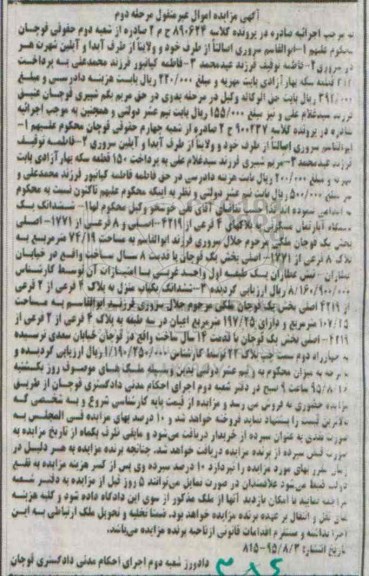 آگهی مزایده اموال غیرمنقول مرحله دوم
به موجب اجرائیه صادره در پرونده کلاسه ۸۹۰۶۲۴ ح م ۲ صادره از شعبه دوم حقوقی قوچان
محکوم علیهم ۱-ابوالقاسم سروری اصالتاً از طرف خود و ولایتاً از طرف آیدا و آیلین شهرت هر
دو سروری ۲-فاطمه توفیف فرزند عیدمحمد ۳-فاطمه کیانپور فرزند محمدعلی به پرداخت
قطعه سکه بهار آزادی بابت مهریه و مبلغ ۲۲۰/۰۰۰ ریال بابت هزینه دادرسی و مبلغ
ریال بابت حق الوکاله وکیل در مرحله بدوی در حق مریم بگم شیری قوچان عتیق
فرزند سیدغلام علی و نیز مبلغ ۱۵۵/۰۰۰ ریال بابت نیم عشر دولتی و همچنین به موجب اجرائیه
صادره در پرونده کلاسه ۹۰۰۲۳۷ ح ۲ صادره از شعبه چهارم حقوقی قوچان محکوم علیهم ۱-
ابوالقاسم سروری اصالتاً از طرف خود و ولایتاً از طرف آیدا و آیلین سروری ۲-فاطمه توفیف
فرزند عیدمحمد ۳-مریم شیری فرزند سیدغلام علی به پرداخت ۱۵۰ قطعه سکه بهار آزادی بابت
مهریه و مبلغ ۲۰۰/۰۰۰ ریال بابت هزینه دادرسی در حق فاطمه کیانپور فرزند محمدعلی و
مبلغ ۵۰۰/۰۰۰ ریال بابت نیم عشر دولتی و نظر به اینکه محکوم علیهم تاکنون نسبت به محکوم
به اقدامی ننموده اند لذا تقاضای آقای علی خوشخو وکیل محکوم لها ۱- ششدانگ یک
دستگاه آپارتمان مسکونی به پلاکهای ۴ فرعی از ۴۲۱۹-اصلی و ۸ فرعی از ۱۷۷۱-اصلی
بخش یک قوچان ملکی مرحوم جلال سروری فرزند ابوالقاسم به مساحت ۷۴/۱۹ مترمربع به
پلاک ۸ فرعی از ۱۷۷۱-اصلی بخش یک قوچان با قدمت ۸ سال ساخت واقع در خیابان
نبش عطاران یک طبقه اول واحد غربی با امتیازات آن توسط کارشناس
۸/۱۶۰/۹۰۰/۰۰۰ ریال ارزیابی گردیده ۲-ششدانگ یکباب منزل به پلاک ۴ فرعی از ۲ فرعی
از ۴۲۱۹ اصلی بخش یک قوچان ملکی مرحوم جلال سروری فرزند ابوالقاسم به مساحت
۱۰۷/۱۵ مترمربع و دارای ۱۹۷/۲۵ مترمربع اعیان در سه طبقه به پلاک ۴ فرعی از ۲ فرعی از
۴۲۱۹-اصلی بخش یک قوچان با قدمت ۱۴ سال ساخت واقع در قوچان خیابان سعدی نرسیده
به چهارراه دوم سمت چپ پلاک ۲۲ توسط کارشناس ۱/۱۹۰/۲۵۰/۰۰۰ ریال ارزیابی گردیده و
به میزان محکوم به و نیم عشر دولتی بدین وسیله ملک های موصوف روز یکشنبه
۹۵/۸/۱۶ ساعت ۹ صبح در دفتر شعبه دوم اجرای احکام مدنی دادگستری قوچان از طریق
مزایده حضوری به فروش می رسد و مزایده از قیمت پایه کارشناسی شروع و به شخصی که
بالاترین قیمت را پیشنهاد نماید فروخته خواهد شد و ۱۰ درصد بهای مزایده فی المجلس به
صورت نقدی به عنوان سپرده از خریدار دریافت می‌شود و مابقی ظرف یکماه از تاریخ مزایده به
صورت قبض سپرده از برنده مزایده دریافت خواهد شد. چنانچه برنده مزایده به هر دلیل در
زمان مقرر بهای مورد مزایده را نپردازد ۱۰ درصد سپرده وی پس از کسر هزینه مزایده به نفع
دولت ضبط می‌شود علاقمندان در صورت تمایل می‌توانند ۵ روز قبل از مزایده به دفتر شعبه
مراجعه نمایند تا امکان بازدید آنها از ملک مذکور از سوی این دادگاه داده شود و کلیه هزینه
های نقل و انتقال بر عهده برنده مزایده خواهد بود. ضمناً تخلیه و تحویل ملک ارتباطی به این
اجرا نداشته و مستلزم اقدامات قانونی از ناحیه برنده مزایده می‌باشد.
تاریخ انتشار: ۹۵/۸/۳-۸۱۵
دادورز شعبه دوم اجرای احکام مدنی دادگستری قوچان
۳۸۶